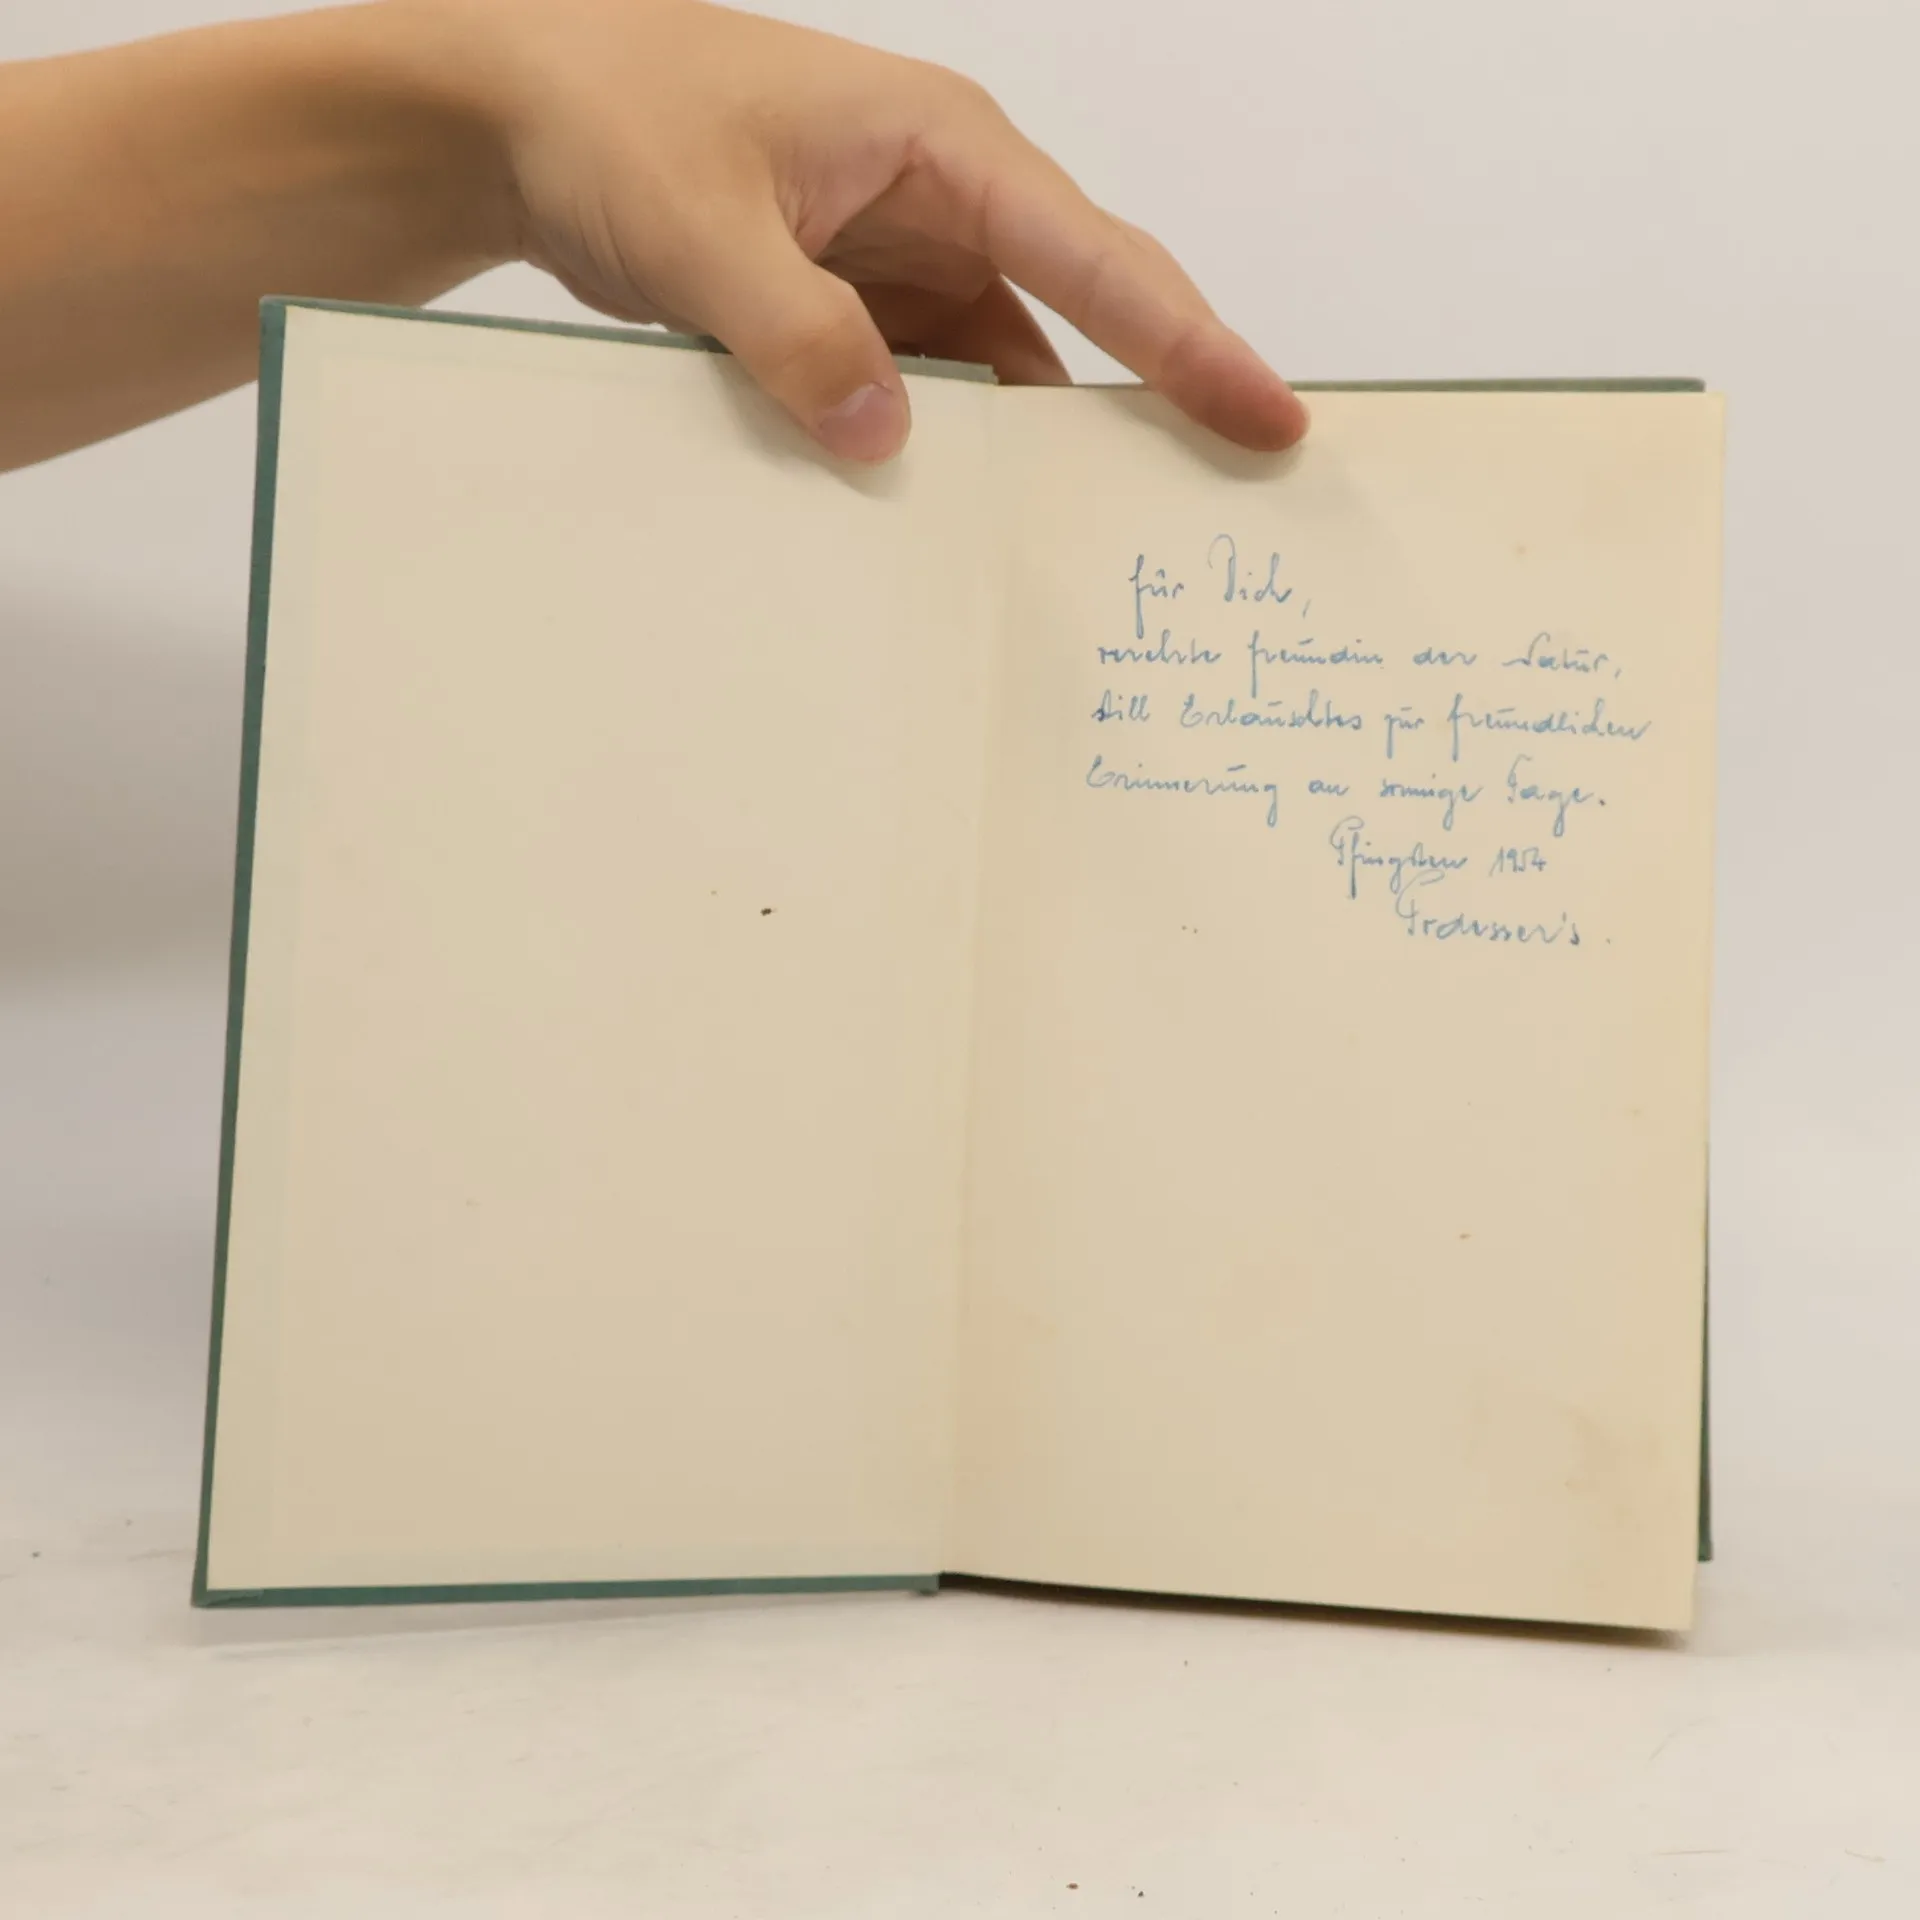 für Dich,
verehrte freundin der Natur,
still Erlauschtes zur freundlichen
Erinnerung an sonnige Tage.
Pfingsten 1954